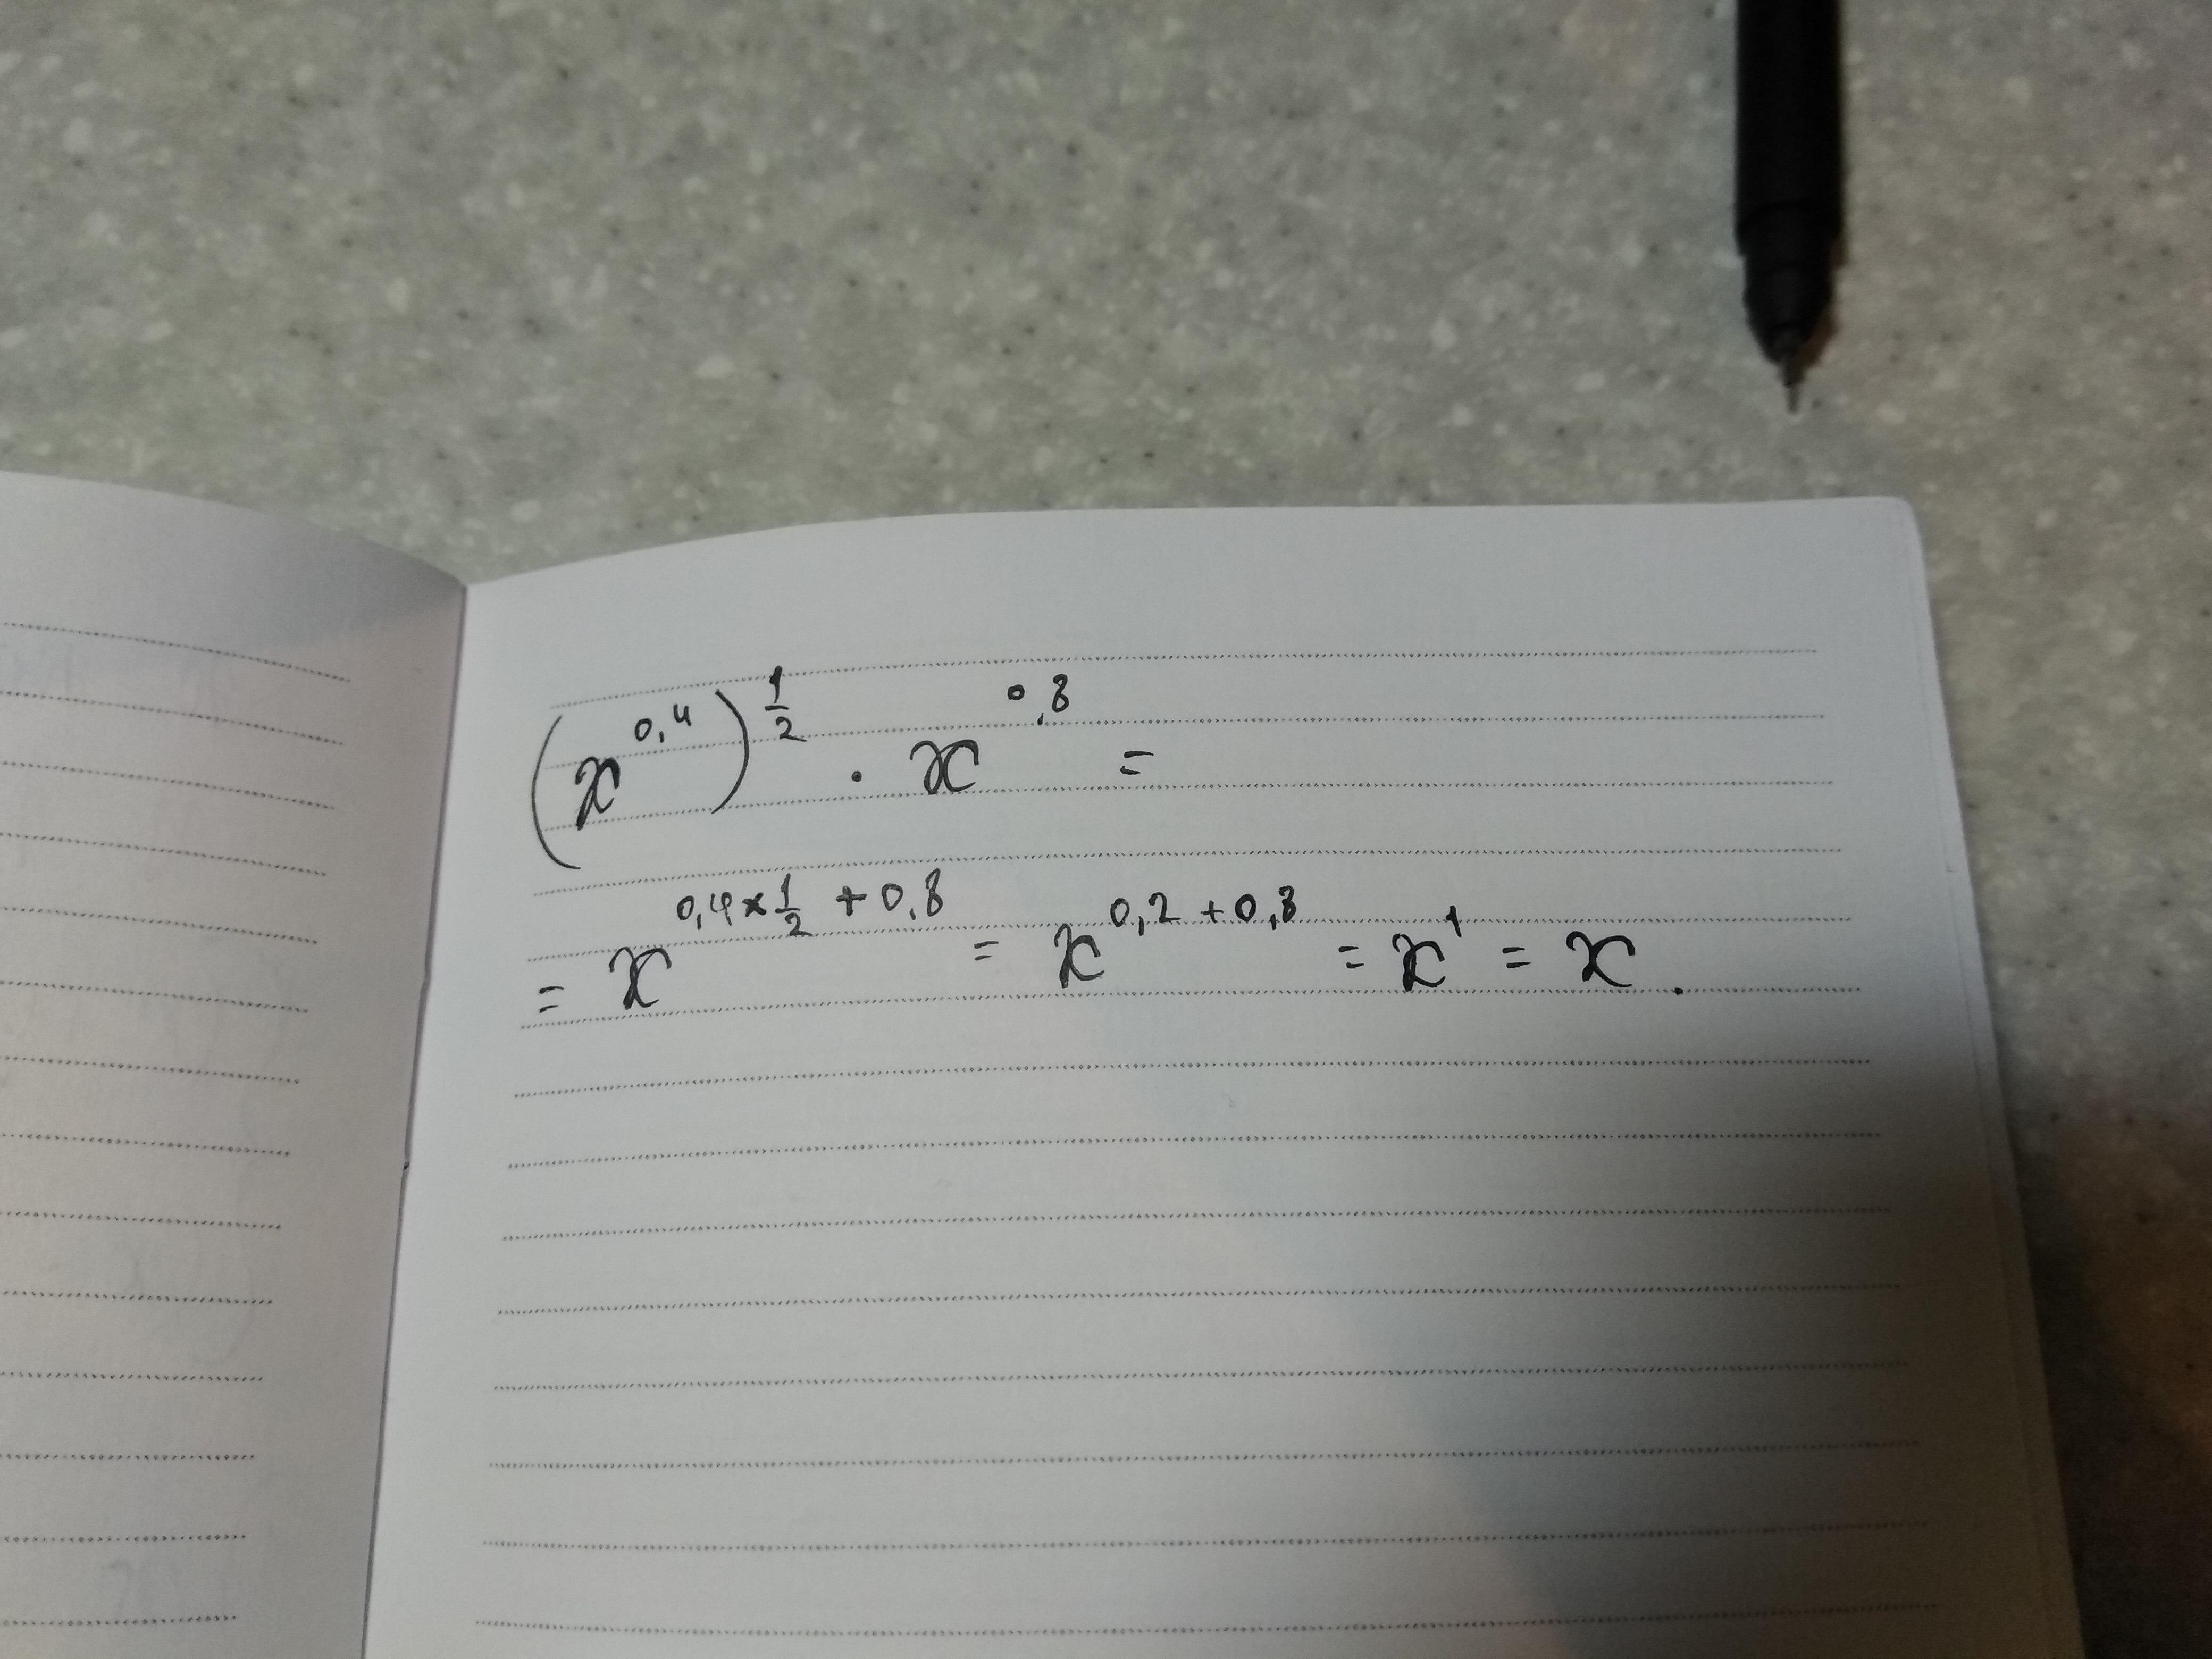 (x^0,4)^1/2 · x^0,8 =
= x^0,4×1/2 + 0,8 = x^0,2 + 0,8 = x^1 = x .